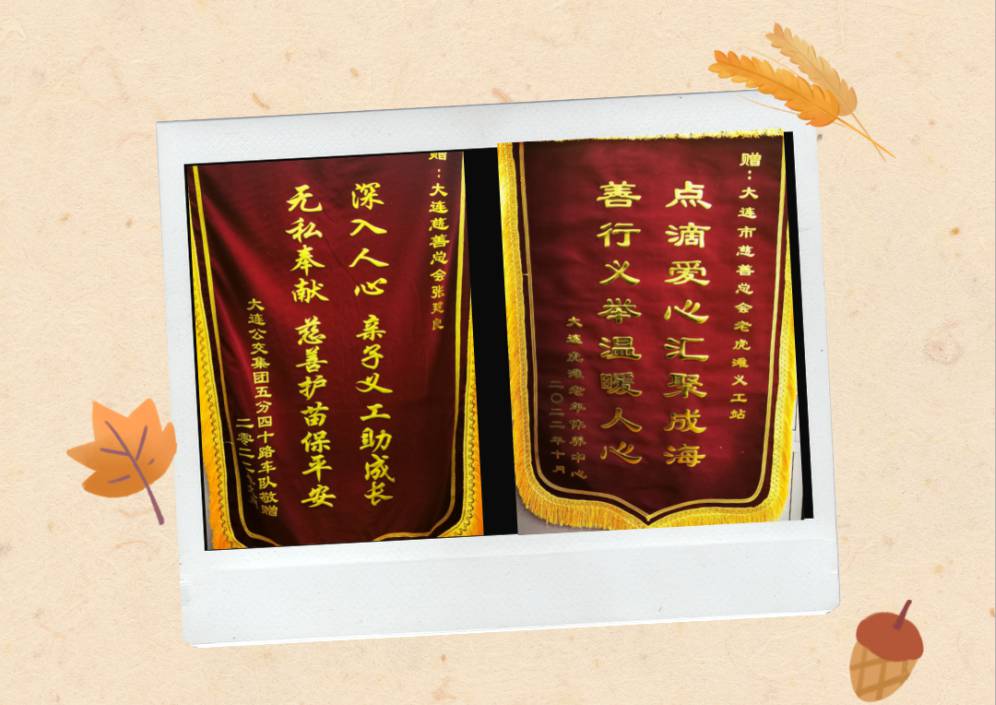 赠：大连慈善总会张
深入人心 亲子义工助成长
无私奉献 慈善护苗保平安
大连公交集团五分四十路车队敬赠
二零二二
赠：大连市慈善总会老虎滩义工站
点滴爱心汇聚成海
善行义举温暖人心
大连虎滩老年
二〇二二年十月